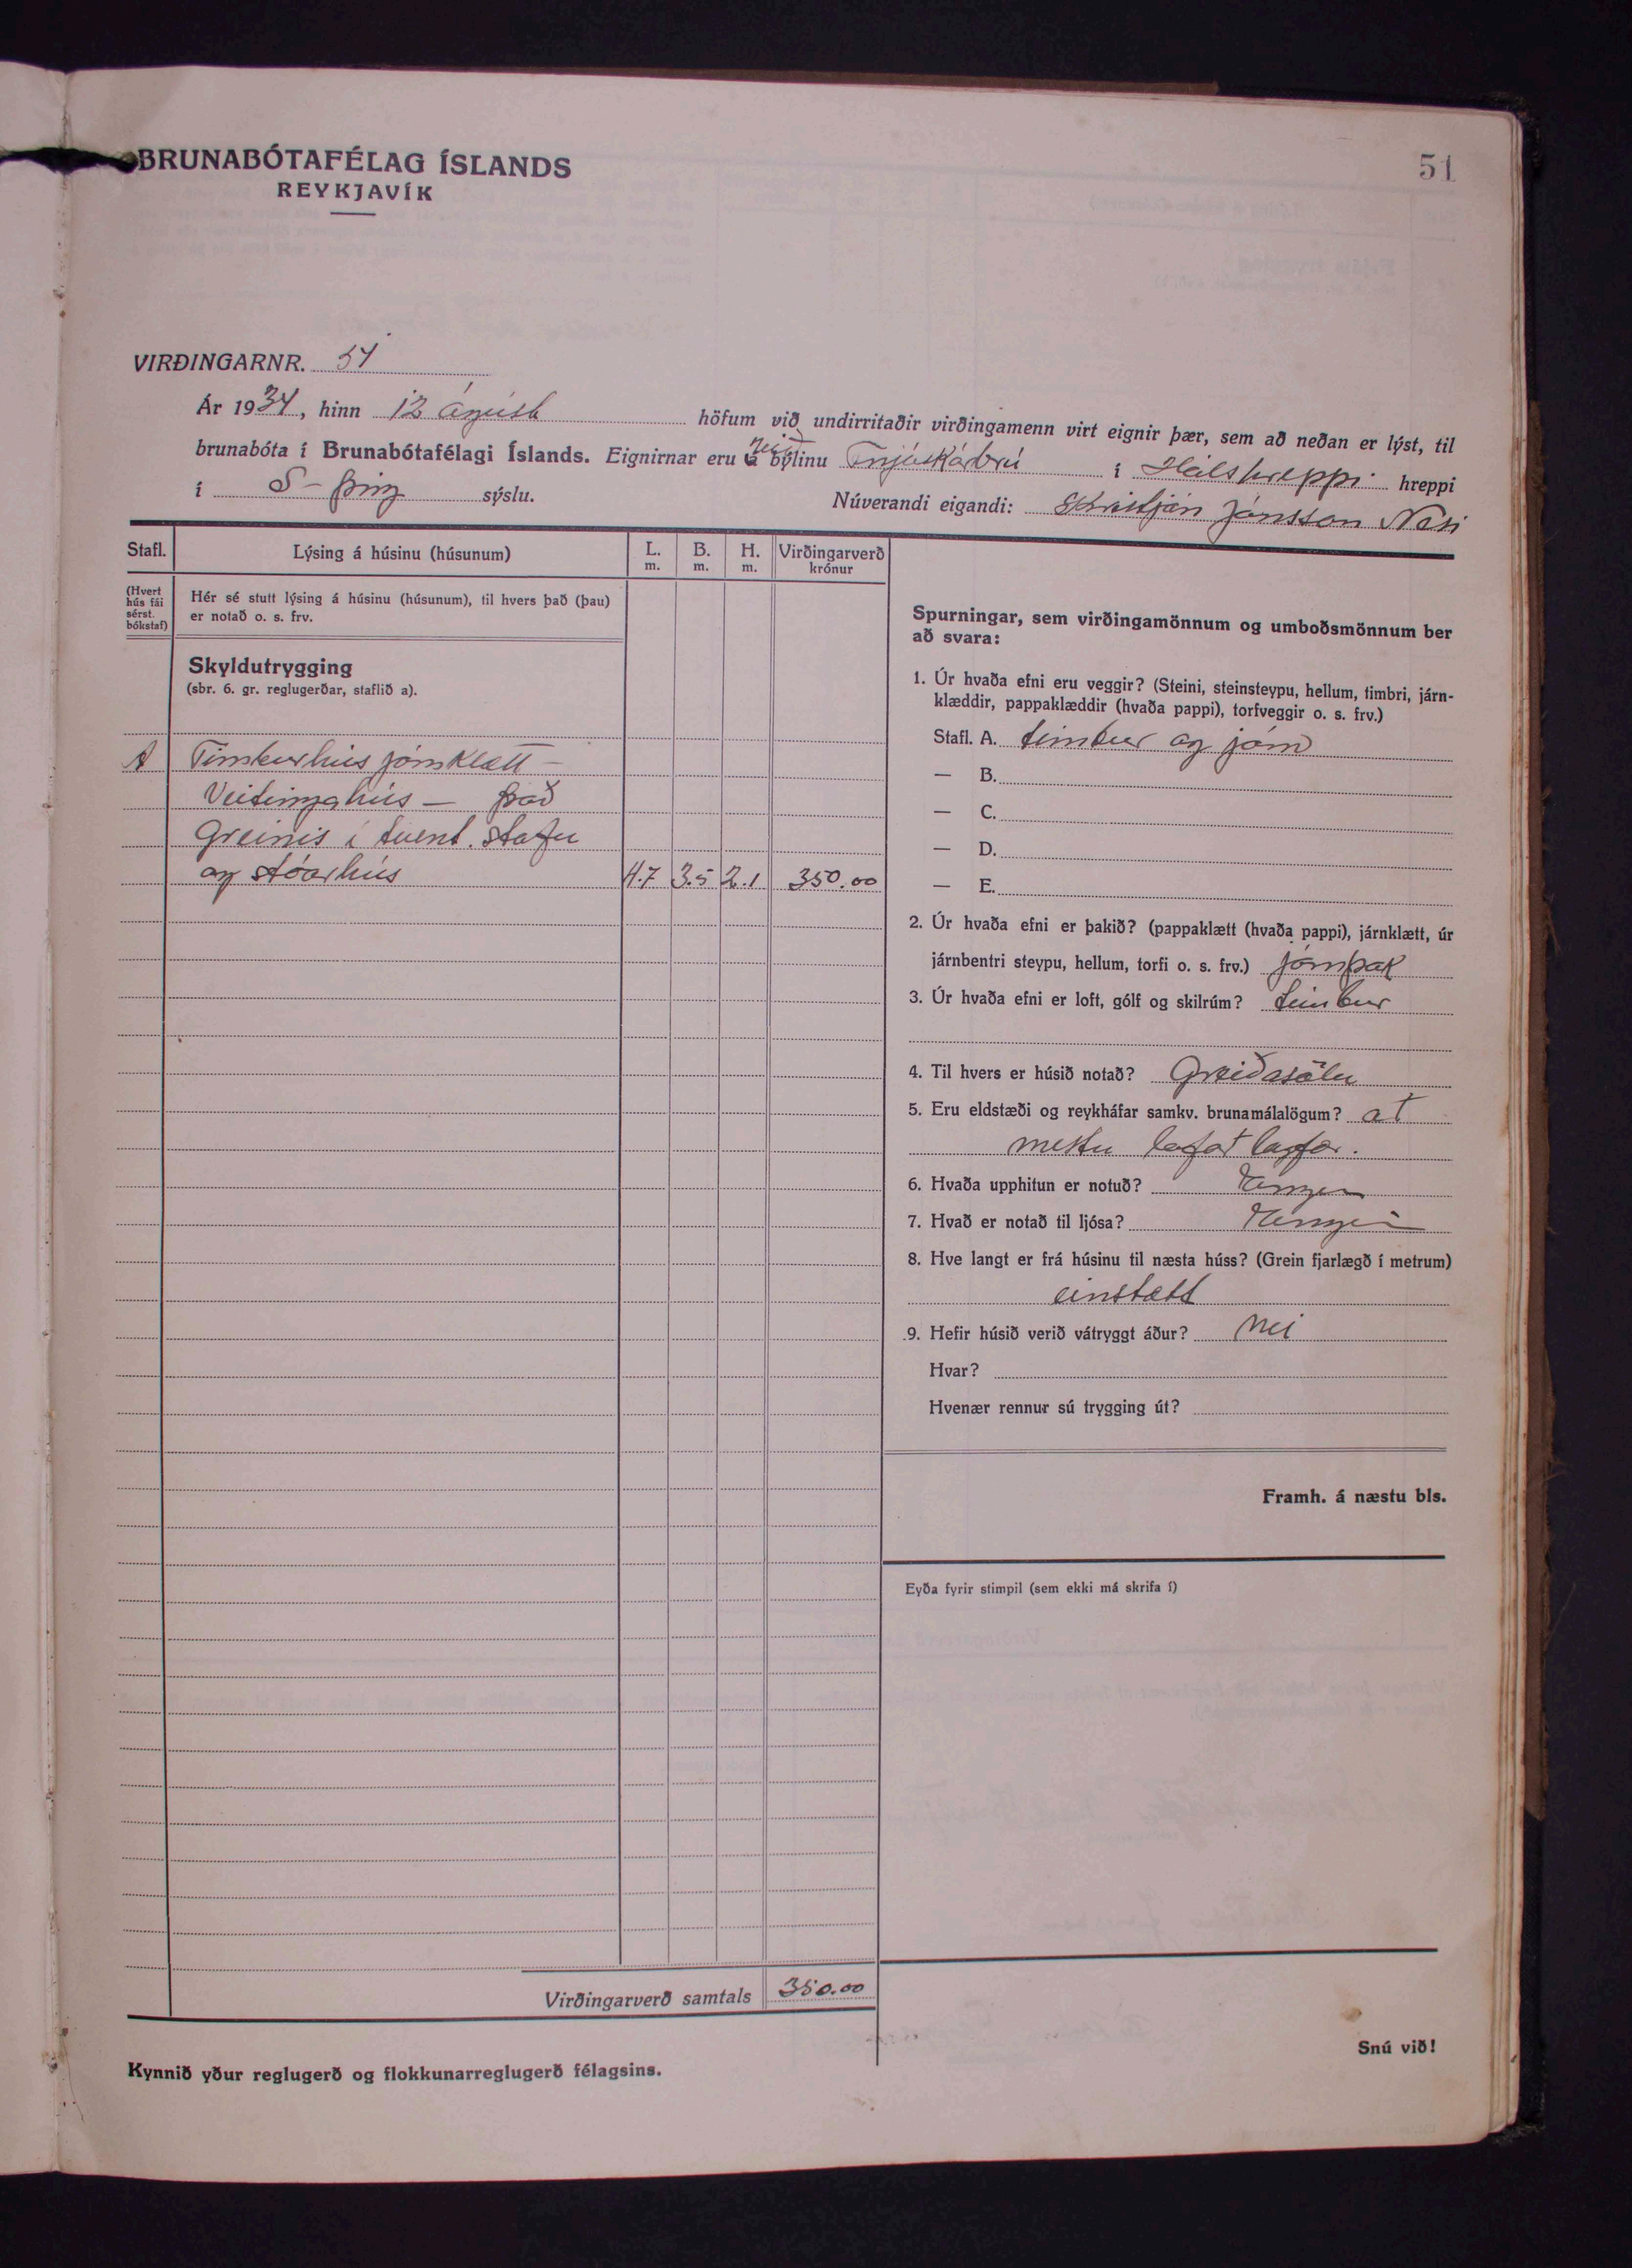 BRUNABÓTAFÉLAG ÍSLANDS
REYKJAVÍK
51
VIRÐINGARNR. 51
Ár 1934, hinn 12 ágúst höfum við undirritaðir virðingamenn virt eignir þær, sem að neðan er lýst, til
brunabóta í Brunabótafélagi Íslands. Eignirnar eru á býlinu við Fnjóskárbrú í Hálshreppi hreppi
í S-Þing sýslu. Núverandi eigandi: Kristján Jónsson Nesi
Stafl. Lýsing á húsinu (húsunum) L. m. B. m. H. m. Virðingarverð krónur
(Hvert hús fái sérst. bókstaf)
Hér sé stutt lýsing á húsinu (húsunum), til hvers það (þau)
er notað o. s. frv.
Skyldutrygging
(sbr. 6. gr. reglugerðar, staflið a).
A Timburhús járnklætt –
Veitingahús – það
Greinis í tvent. stofu
og stóarhús 4.7 3.5 2.1 350.00
Virðingarverð samtals 350.00
Kynnið yður reglugerð og flokkunarreglugerð félagsins.
Spurningar, sem virðingamönnum og umboðsmönnum ber
að svara:
1. Úr hvaða efni eru veggir? (Steini, steinsteypu, hellum, timbri, járn-
klæddir, pappaklæddir (hvaða pappi), torfveggir o. s. frv.)
Stafl. A. timbur og járn
— B.
— C.
— D.
— E.
2. Úr hvaða efni er þakið? (pappaklætt (hvaða pappi), járnklætt, úr
járnbentri steypu, hellum, torfi o. s. frv.) járnþak
3. Úr hvaða efni er loft, gólf og skilrúm? timbur
4. Til hvers er húsið notað? Greiðasölu
5. Eru eldstæði og reykháfar samkv. brunamálalögum? at
mestu
6. Hvaða upphitun er notuð? Eingin
7. Hvað er notað til ljósa? Eingin
8. Hve langt er frá húsinu til næsta húss? (Grein fjarlægð í metrum)
einstætt
9. Hefir húsið verið vátryggt áður? nei
Hvar?
Hvenær rennur sú trygging út?
Framh. á næstu bls.
Eyða fyrir stimpil (sem ekki má skrifa í)
Snú við!